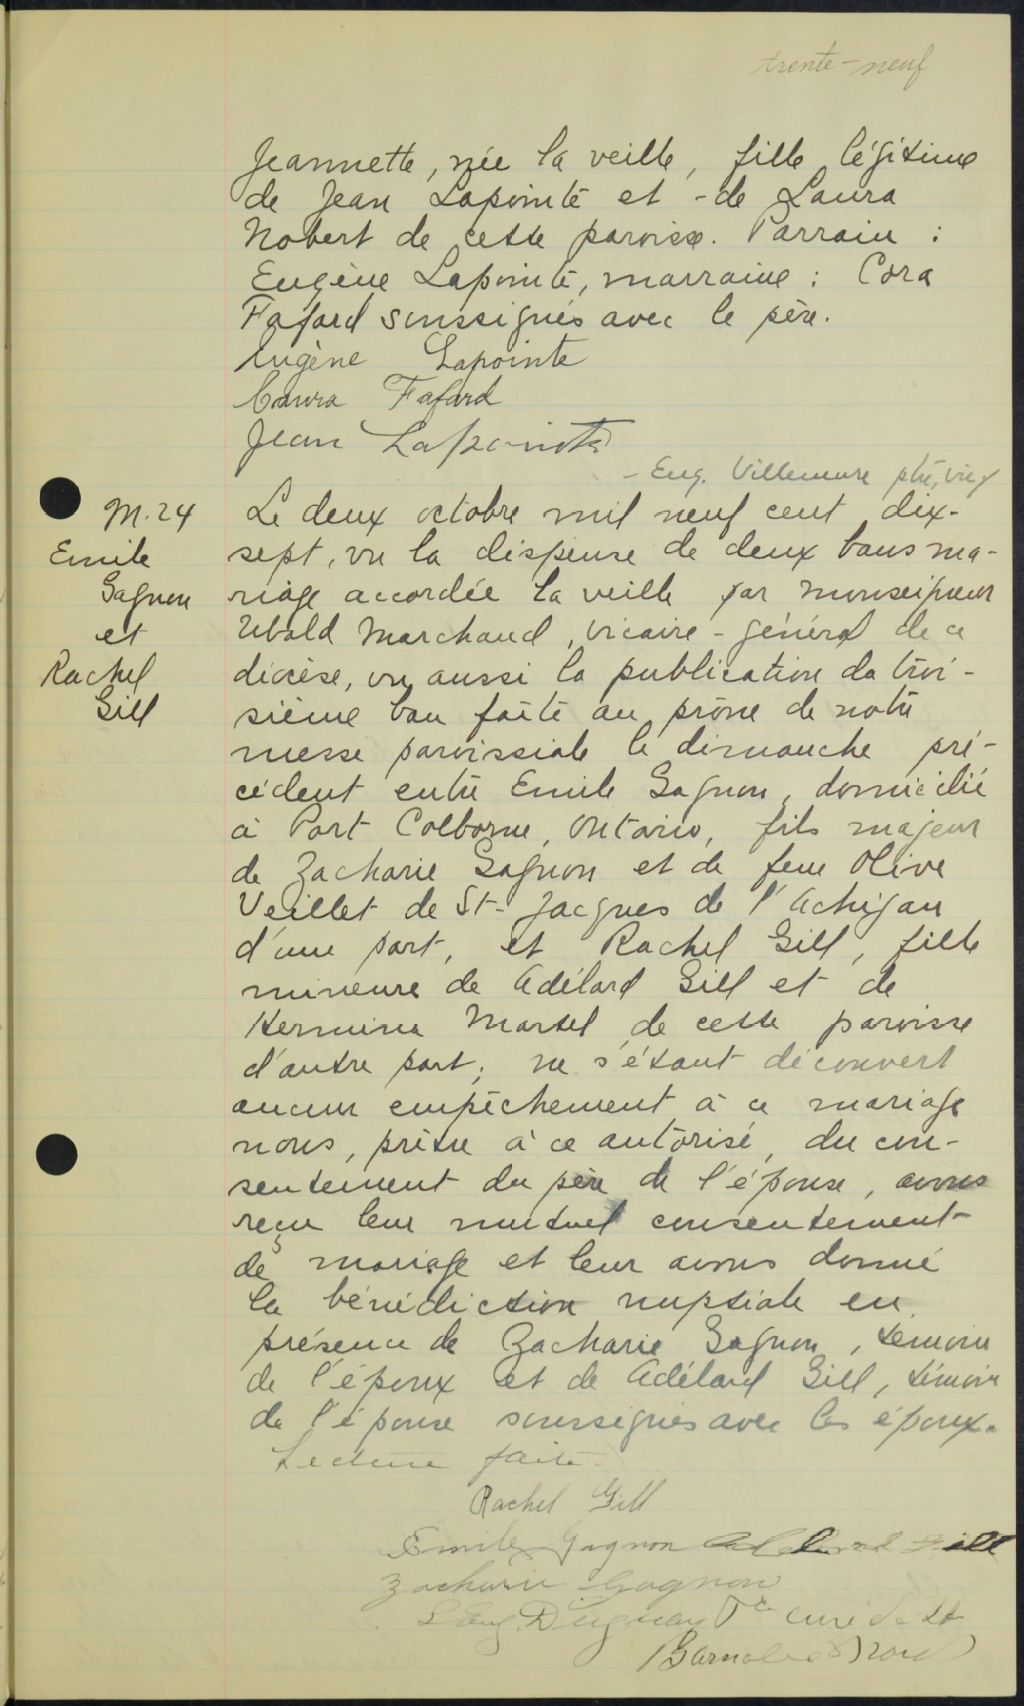 trente-neuf
Jeannette, née la veille, fille légitime
de Jean Lapointe et - de Laura
Nobert de cette paroisse. Parrain :
Eugène Lapointe, marraine : Cora
Fafard soussignés avec le père.
Eugène Lapointe
Caura Fafard
Jean Lapointe
- Eug. Villemure ptre, vic.
M. 24
Emile
Gagnon
et
Rachel
Gill
Le deux octobre mil neuf cent dix-
sept, vu la dispense de deux bans ma-
riage accordée la veille par monseigneur
Ubald Marchand, vicaire-général de ce
diocèse, vu aussi la publication du troi-
sième ban faite au prône de notre
messe paroissiale le dimanche pré-
cédent entre Emile Gagnon, domicilié
à Port Colborne, Ontario, fils majeur
de Zacharie Gagnon et de feue Olive
Veillet de St-Jacques de l'Achigan
d'une part, et Rachel Gill, fille
mineure de Adélard Gill et de
Hermina Martel de cette paroisse
d'autre part; ne s'étant découvert
aucun empêchement à ce mariage
nous, prêtre à ce autorisé, du con-
sentement du père de l'épouse, avons
reçu leur mutuel consentement
de mariage et leur avons donné
la bénédiction nuptiale en
présence de Zacharie Gagnon, témoin
de l'époux et de Adélard Gill, témoin
de l'épouse soussignés avec les époux.
Lecture faite.
Rachel Gill
Emile Gagnon Adelard Gill
Zacharie Gagnon
Duguay Ptre curé de St
Barnabé Nord